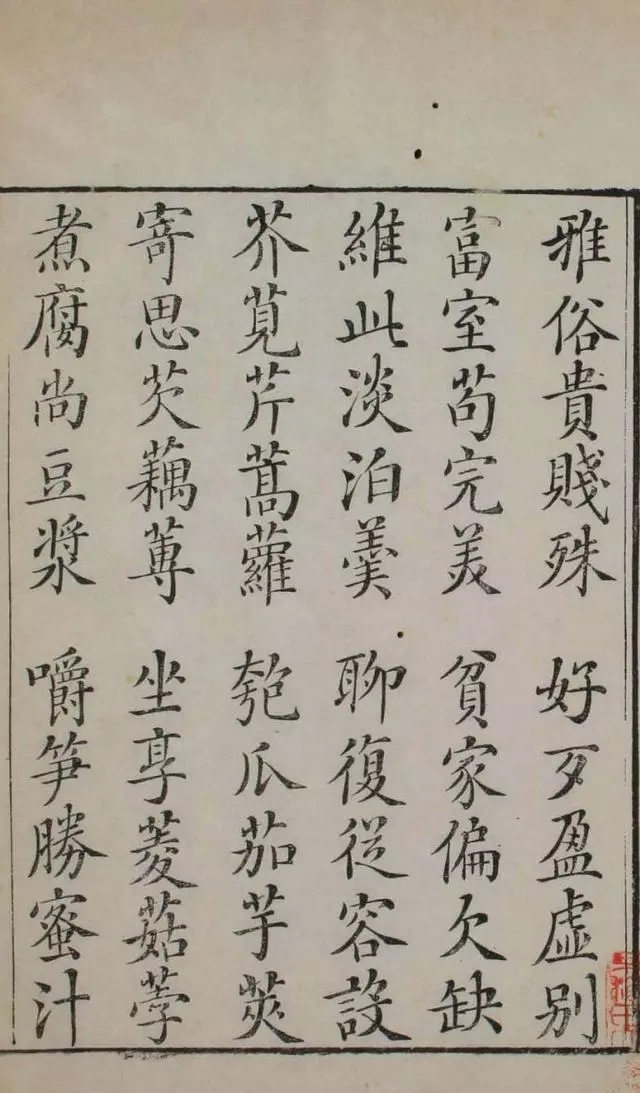 雅俗貴賤殊 好歹盈虛別
富室苟完美 貧家偏欠缺
維此淡泊羹 聊復從容設
芥莧芹蒿蘿 匏瓜茄芋莢
寄思芡藕蓴 坐享菱菇荸
煮腐尚豆漿 嚼笋勝蜜汁